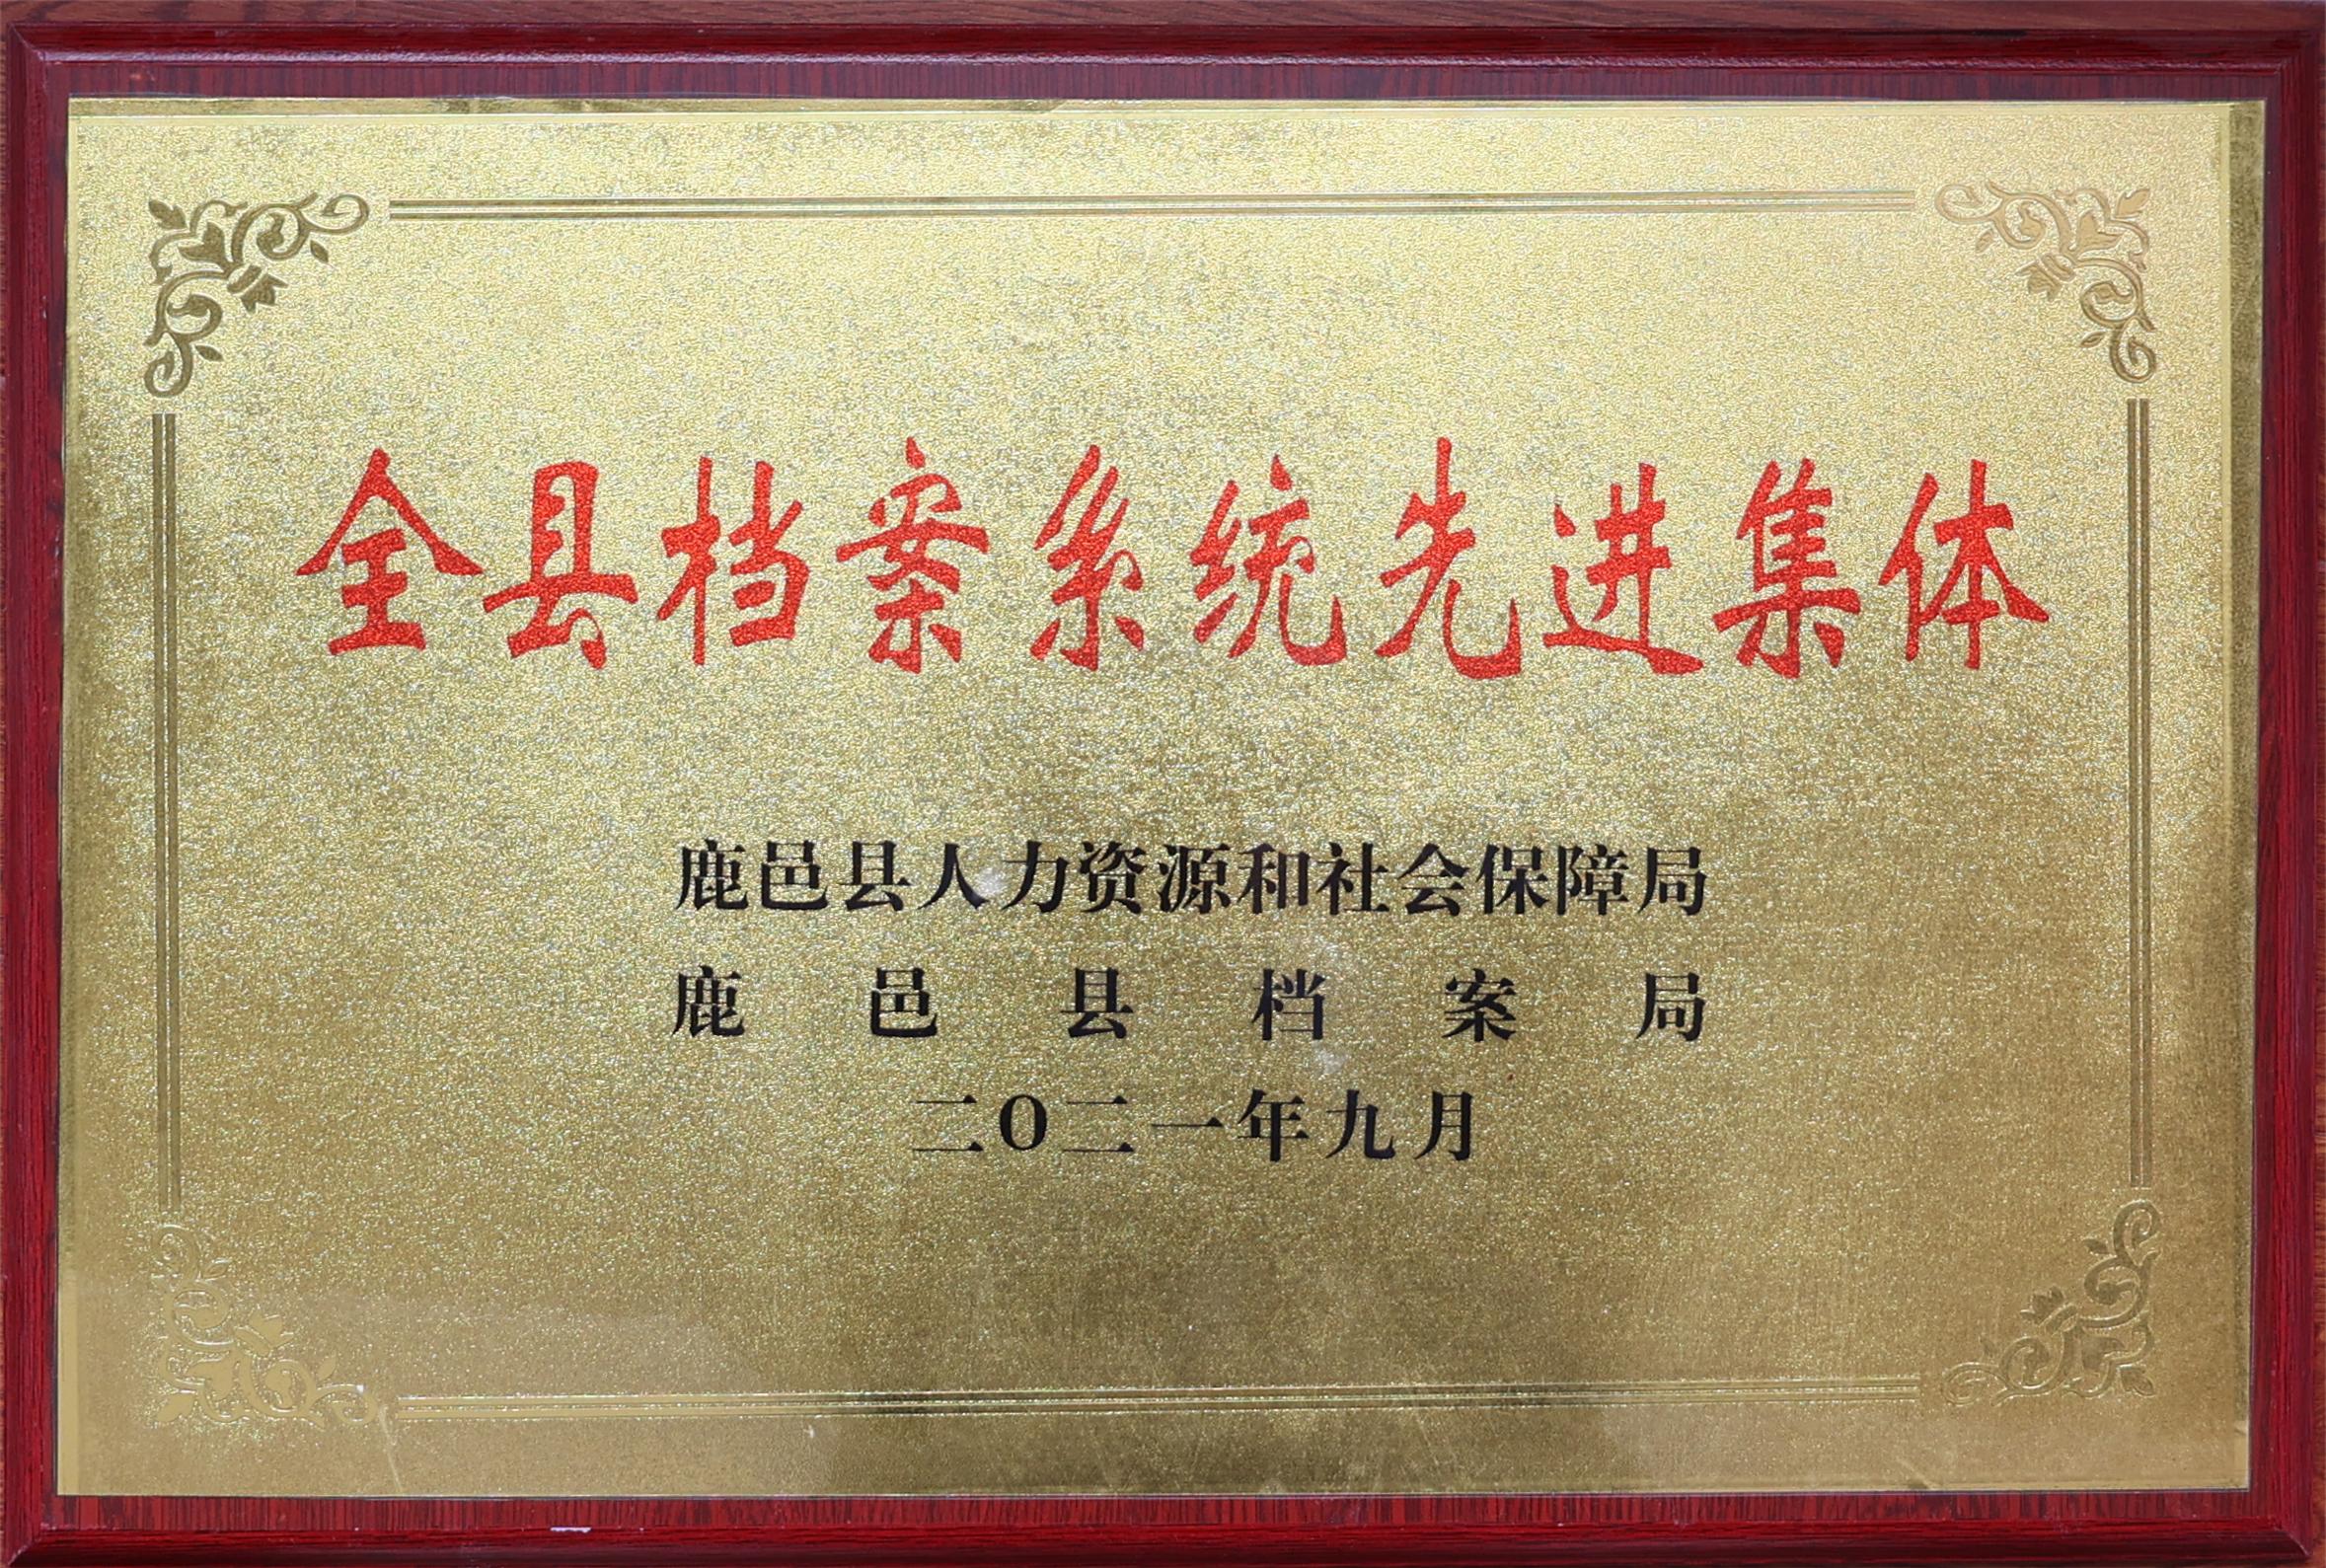 全县档案系统先进集体
鹿邑县人力资源和社会保障局
鹿邑县档案局
二O二一年九月